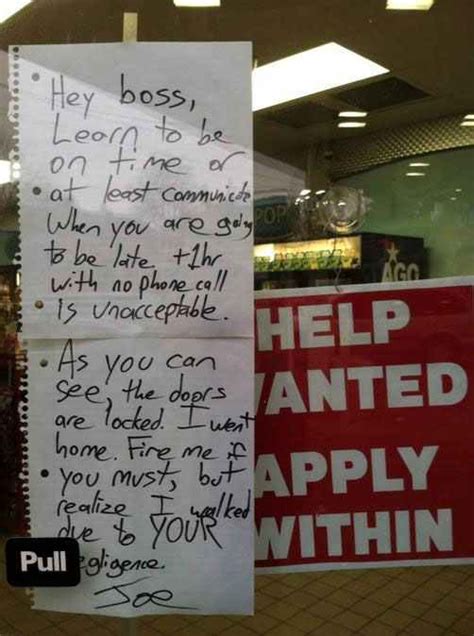 Hey boss,
Learn to be
on time or
at least communicate
When you are going
to be late +1hr
with no phone call
is unacceptable.
As you can
see, the doors
are locked. I went
home. Fire me if
you must, but
realize I walked
due to YOUR
egligence.
Joe
Pull
POP
AGO
HELP
ANTED
APPLY
WITHIN